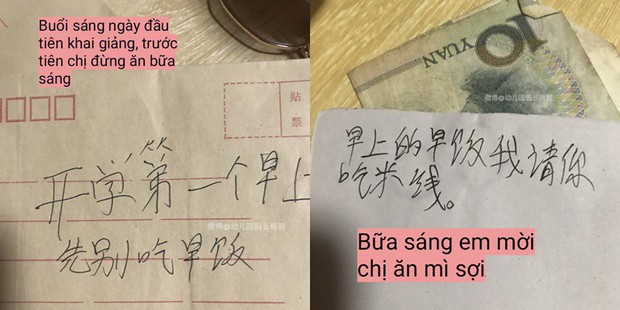 Buổi sáng ngày đầu
tiên khai giảng, trước
tiên chị đừng ăn bữa
sáng
贴
票
开学第一个早上
微博@幼儿园园长熊熊
先别吃早饭
10 YUAN
微博@幼儿园园长熊熊
早上的早饭我请你
吃米线。
Bữa sáng em mời
chị ăn mì sợi